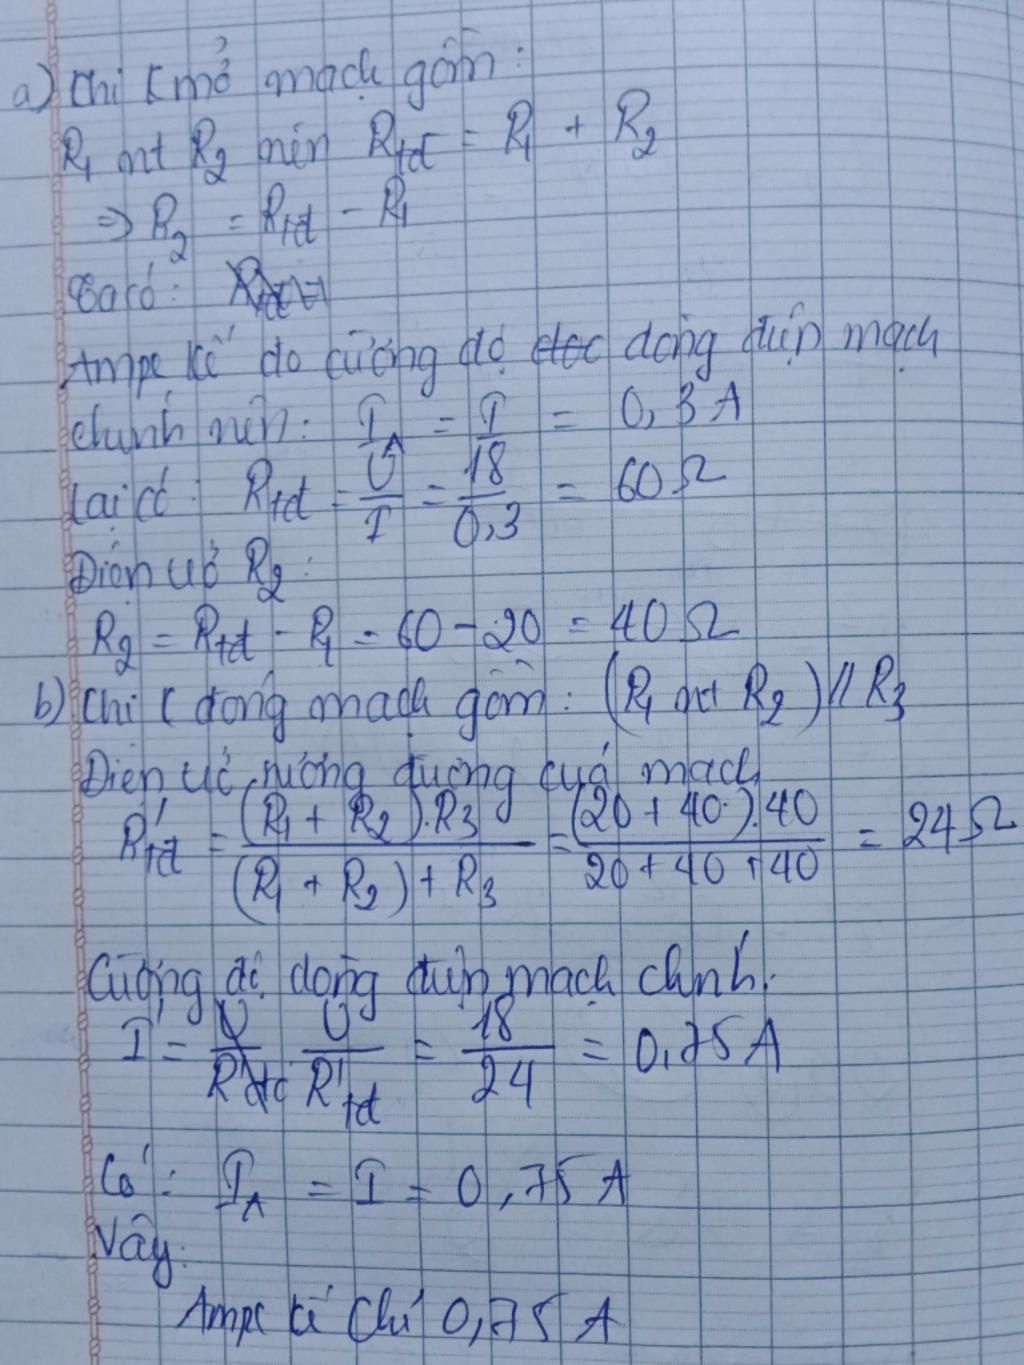 a) Khi K mở mạch gồm:
R1 nt R2 nên Rtđ = R1 + R2
=> R2 = Rtđ - R1
Ta có:
Ampe kế đo cường độ dòng điện mạch
chính nên: IA = I = 0,3A
Lại có: Rtđ = U/I = 18/0,3 = 60Ω
Điện trở R2:
R2 = Rtđ - R1 = 60 - 20 = 40Ω
b) Khi K đóng mạch gồm: (R1 nt R2)//R3
Điện trở tương đương của mạch
R'tđ = (R1 + R2).R3/(R1 + R2) + R3 = (20 + 40).40/20 + 40 + 40 = 24Ω
Cường độ dòng điện mạch chính:
I' = U/R'tđ = 18/24 = 0,75A
Có: IA = I = 0,75 A
Vậy:
Ampe kế chỉ 0,75 A